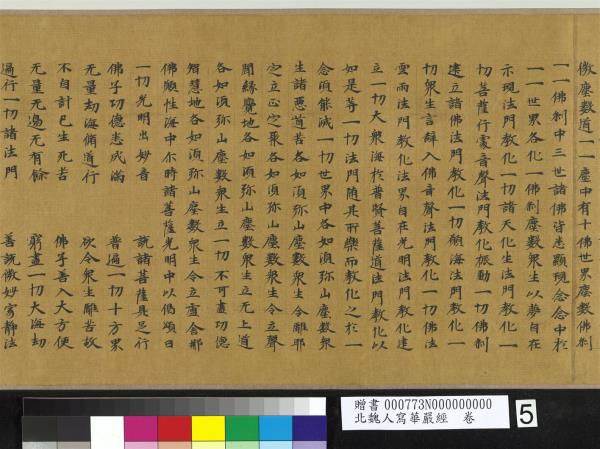 微塵數道一一塵中有十佛世界塵數佛剎
一一佛剎中三世諸佛皆悉顯現念念中於
一一世界各化一佛剎塵數衆生以夢自在
示現法門教化一切諸天化生法門教化一
切菩薩行處音聲法門教化振動一切佛剎
建立諸佛法門教化一切願海法門教化一
切衆生言辭入佛音聲法門教化一切佛法
雲雨法門教化法界自在光明法門教化建
立一切大衆海於普賢菩薩道法門教化以
如是等一切法門随其所樂而教化之於一
念頃能滅一切世界中各如湏弥山塵數衆
生諸惡道苦各如湏弥山塵數衆生令離耶
定立正定之聚各如湏弥山塵數衆生令立聲
聞緣覺地各如湏弥山塵數衆生立无上道
各如湏弥山塵數衆生立一切不可盡功德
智慧地各如湏弥山塵數衆生令立盧舍那
佛願性海中尒時諸菩薩光明中以偈頌曰
一切光明出妙音　說諸菩薩具足行
佛子功德悉成滿　普遍一切十方界
无量劫海脩道行　欲令衆生離苦故
不自計己生死苦　佛子善入大方便
无量无邊无有餘　窮盡一切大海劫
遍行一切諸法門　善說微妙寂静法
贈書 000773N000000000
北魏人寫華嚴經　卷
5